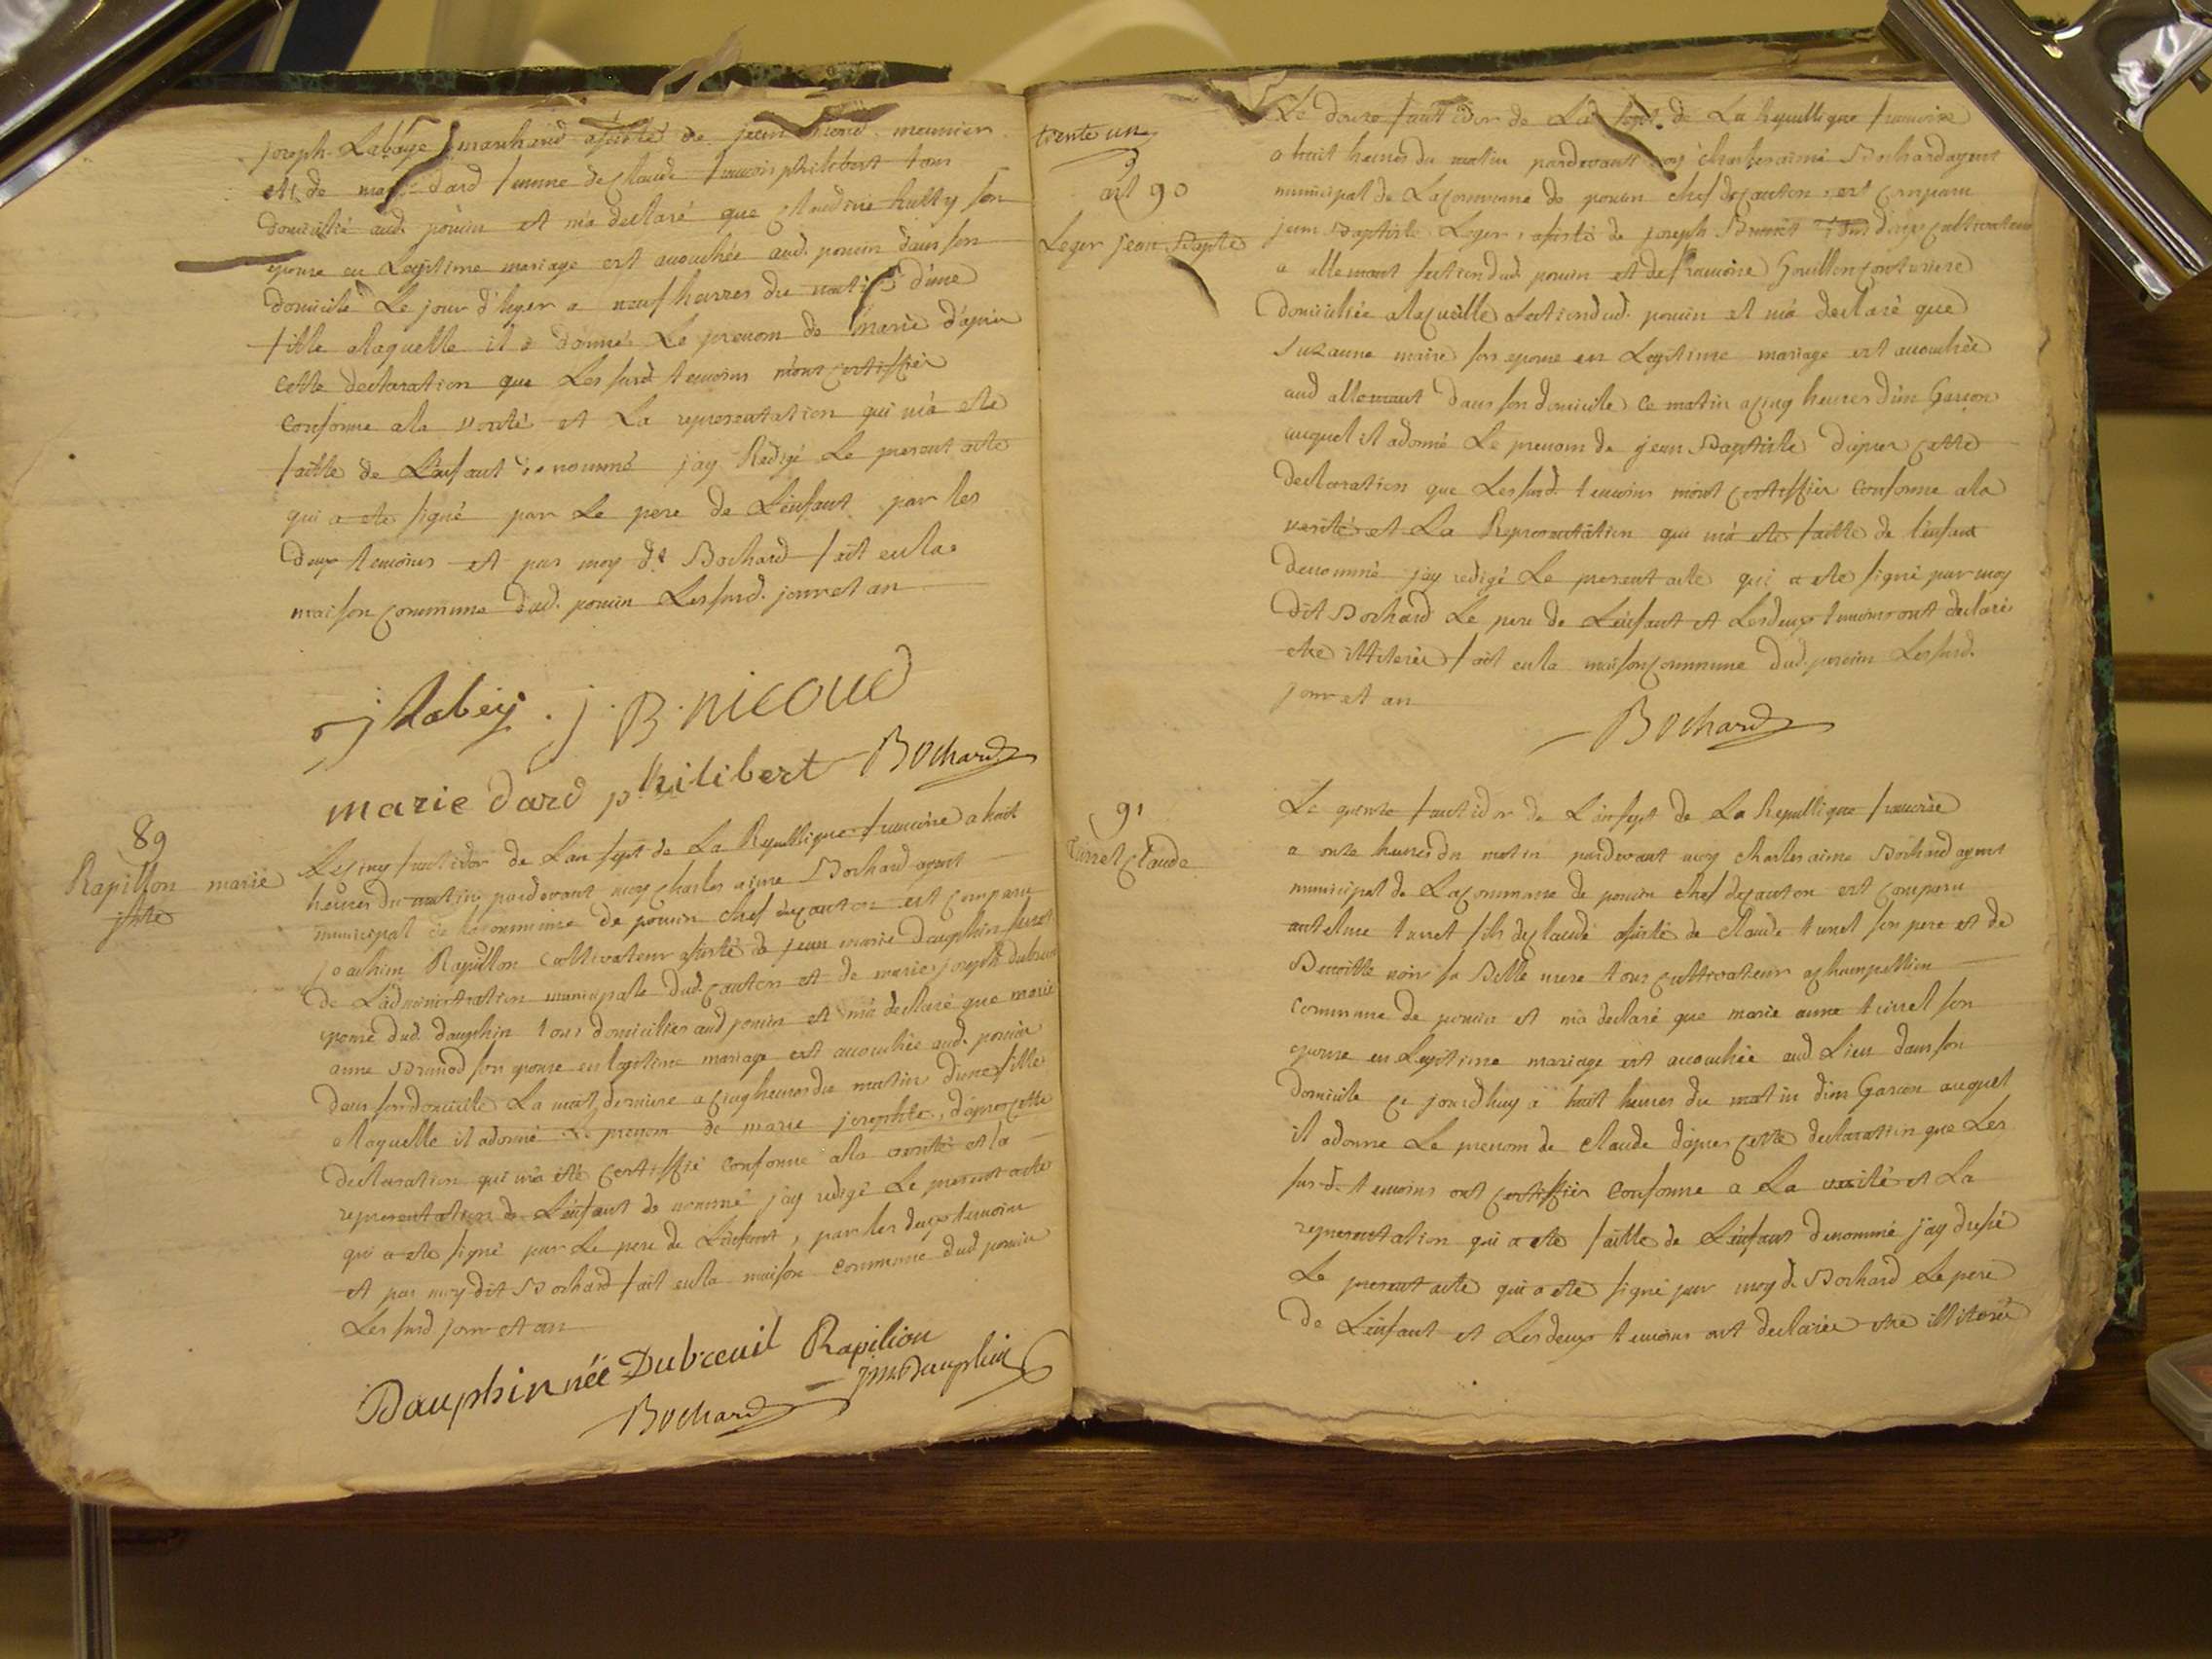 joseph Labaye marchand assisté de jean nicoud meunier
et de marie dard femme de Claude francois philibert tous
domicilié aud. pouin et m'a declaré que Claudine hutty son
epouse en Legitime mariage est acouchée aud. pouin dans son
domicile Le jour d'hyer a neuf heures du matin d'une
fille alaquelle il a donné Le prenom de marie d'apres
cette declaration que Les susd. temoins m'ont certiffier
conforme ala verité et La representation qui m'a ete
faitte de L'enfant denommé j'ay Redigé Le present acte
qui a ete signé par Le pere de L'enfant par les
deux temoins et par moy dt Bochard fait en la
maison commune dud. pouin Les susd. jour et an
j labey . j. B. nicoud
marie dard philibert Bochard
89
Rapillon marie
jphte
Le cinq fructidor de L'an sept de La Republique francoise a huit
heures du matin pardevant moy Charles aime Bochard agent
municipal de la commune de pouin chef de canton est comparu
joachim Rapillon cultivateur assisté de jean marie dauphin
de L'administration municipale dud. canton et de marie joseph dubreuil
epouse dud. dauphin tous domiciliés aud pouin et m'a declaré que marie
anne Brunod son epouse en legitime mariage est acouchée aud. pouin
dans son domicile La nuit derniere a cinq heures du matin d'une fille
a laquelle il a donné Le prenom de marie josephte, d'apres cette
declaration qui m'a été certiffié conforme ala verité et la
representation de L'enfant de nommé j'ay redigé Le present acte
qui a ete signé par Le pere de L'enfant, par les deux temoins
et par moy dit Bochard fait en la maison commune dud pouin
Les susd jour et an
Dauphin néé Dubreuil Rapilion
Bochard jm Dauphin
trente un
art 90
Leger jean Bapte
Le douze fructidor de La sept. de La Republique francoise
a huit heures du matin pardevant moy charles aimé Bochard agent
municipal de La Commune de pouin chef de canton, est comparu
jean Baptiste Leger, assisté de joseph Benoit cultivateur
a allemont section dud. pouin et de francoise Goullon couturiere
domiciliée alacueille section dud. pouin et m'a declaré que
Suzanne moire son epouse en Legitime mariage est acouchée
aud allemont dans son domicile ce matin a cinq heures d'un Garçon
auquel il a donné Le prenom de jean Baptiste d'apres cette
declaration que Les susd. temoins m'ont certiffier conforme ala
verité et La Representation qui m'a ete faitte de l'enfant
denommé j'ay redigé Le present acte qui a ete signé par moy
dit Bochard Le pere de L'enfant et Les deux temoins ont declaré
etre illiterés fait en la maison commune dud. pouin Les susd.
jour et an
Bochard
91
turrel Claude
Le quinze fructidor de L'an sept de La Republique francoise
a onze heures du matin pardevant moy charles aime Bochard agent
municipal de La Commune de pouin chef de canton est comparu
antelme turret fils de claude assisté de claude turret son pere et de
Benoitte noir sa Belle mere tous cultivateur a champettion
commune de pouin et m'a declaré que marie anne turrel son
epouse en Legitime mariage est acouchée aud Lieu dans son
domicile ce jourdhuy a huit heures du matin d'un Garçon auquel
il a donné Le prenom de claude d'apres cette declaration que Les
sus.d. temoins ont certiffier conforme a La verité et La
representation qui a ete faitte de L'enfant denommé j'ay dressé
Le present acte qui a ete signé par moy d. Bochard Le pere
de L'enfant et Les deux temoins ont declarée etre illiteré